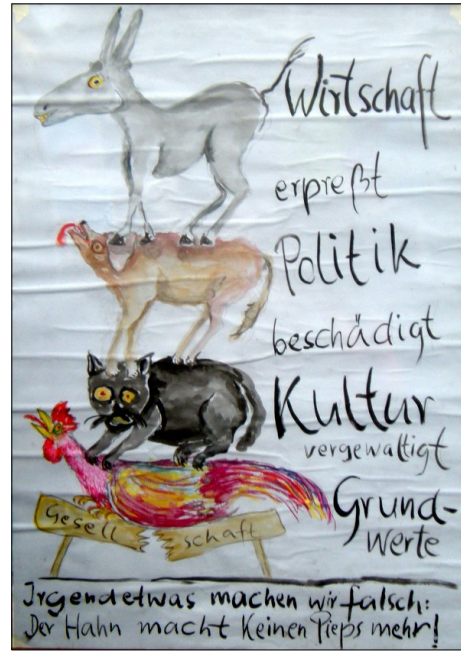 Wirtschaft
erpreßt
Politik
beschädigt
Kultur
vergewaltigt
Grund-
werte
Gesell
schaft
Irgendetwas machen wir falsch:
Der Hahn macht Keinen Pieps mehr!